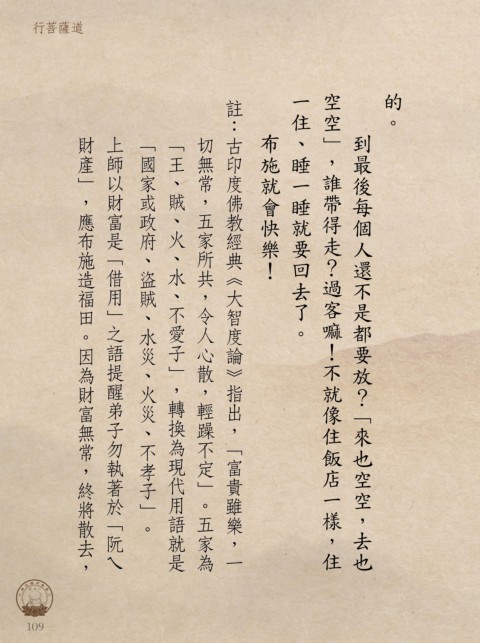 行菩薩道
的。
到最後每個人還不是都要放？「來也空空，去也
空空」，誰帶得走？過客嘛！不就像住飯店一樣，住
一住、睡一睡就要回去了。
布施就會快樂！
註：古印度佛教經典《大智度論》指出，「富貴雖樂，一
切無常，五家所共，令人心散，輕躁不定」。五家為
「王、賊、火、水、不愛子」，轉換為現代用語就是
「國家或政府、盜賊、水災、火災、不孝子」。
上師以財富是「借用」之語提醒弟子勿執著於「阮ㄟ
財產」，應布施造福田。因為財富無常，終將散去，
109